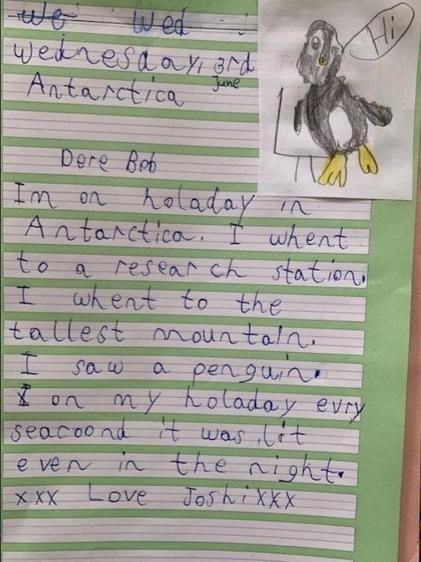 We Wed
Wednesday, 3rd
June
Antarctica
Hi
Dere Bob
Im on holaday in
Antarctica. I whent
to a research station.
I whent to the
tallest mountain.
I saw a penguin.
I on my holaday evry
seacoond it was lit
even in the night.
xxx Love Joshi xxx